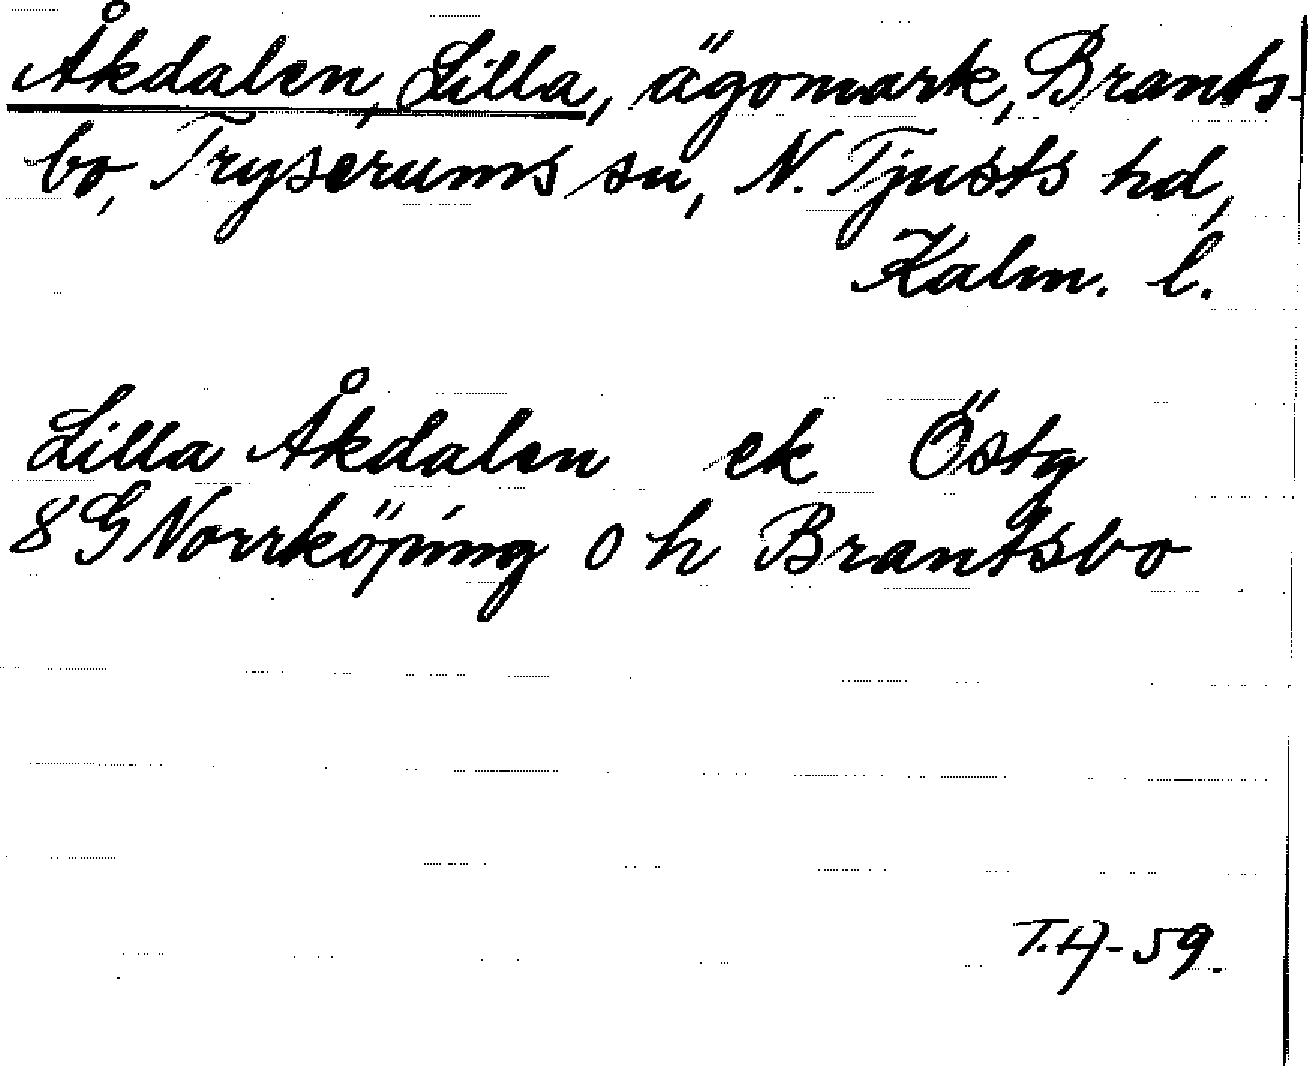 Åkdalen, Lilla, ägomark, Brants-
bo, Tryserums sn, N. Tjusts hd,
Kalm. l.
Lilla Åkdalen ek Östg
8 G Norrköping o h Brantsbo
T.H-59.